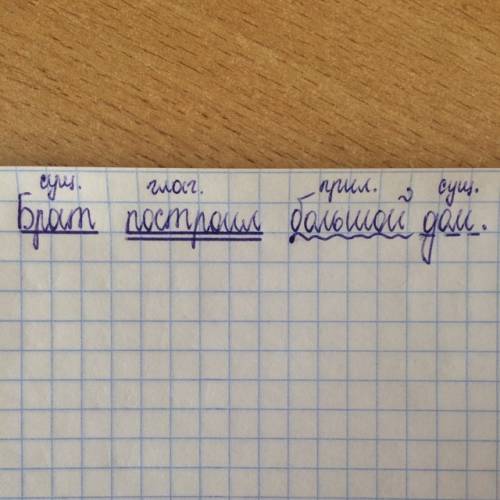 сущ. глаг. прил. сущ.
Брат построил большой дом.